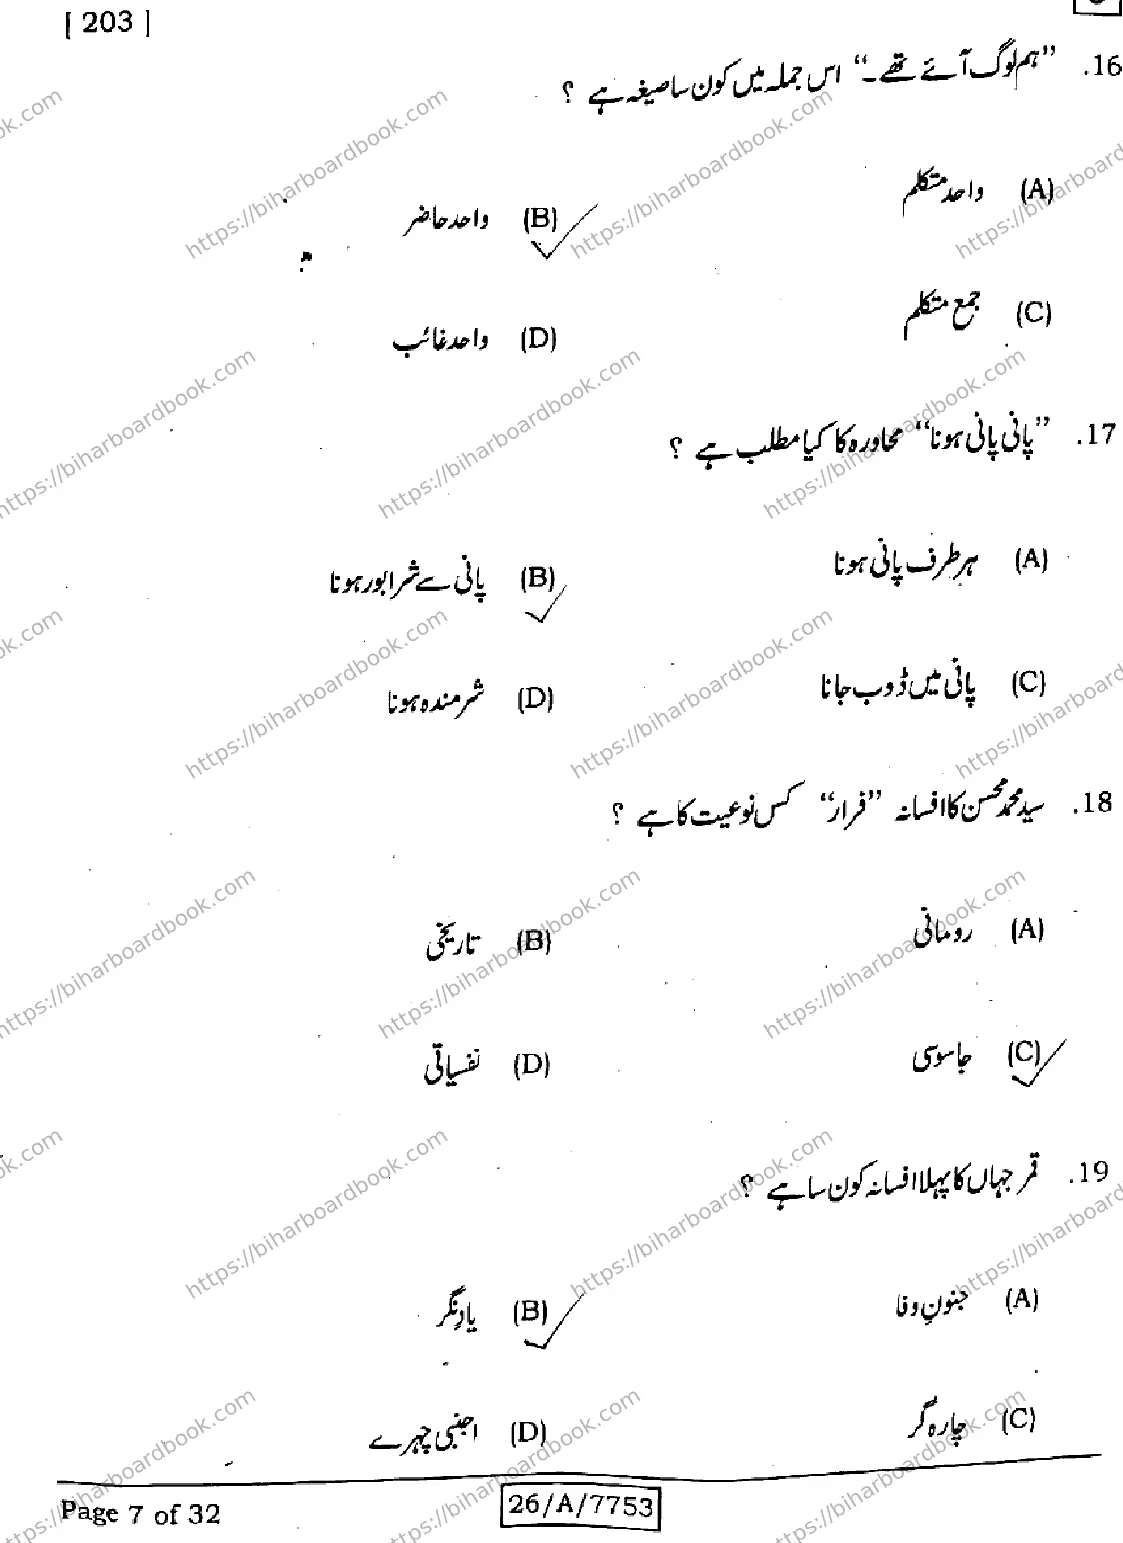 [ 203 ]
16. ”ہم لوگ آئے تھے۔“ اس جملہ میں کون سا صیغہ ہے ؟
(A) واحد متکلم
(B) واحد حاضر
(C) جمع متکلم
(D) واحد غائب
17. ”پانی پانی ہونا“ محاورہ کا کیا مطلب ہے ؟
(A) ہر طرف پانی ہونا
(B) پانی سے شرابور ہونا
(C) پانی میں ڈوب جانا
(D) شرمندہ ہونا
18. سید محمد محسن کا افسانہ ”فرار“ کس نوعیت کا ہے ؟
(A) رومانی
(B) تاریخی
(C) جاسوسی
(D) نفسیاتی
19. قمر جہاں کا پہلا افسانہ کون سا ہے ؟
(A) جنونِ وفا
(B) یادِنگر
(C) چارہ گر
(D) اجنبی چہرے
Page 7 of 32
26/A/7753
https://biharboardbook.com